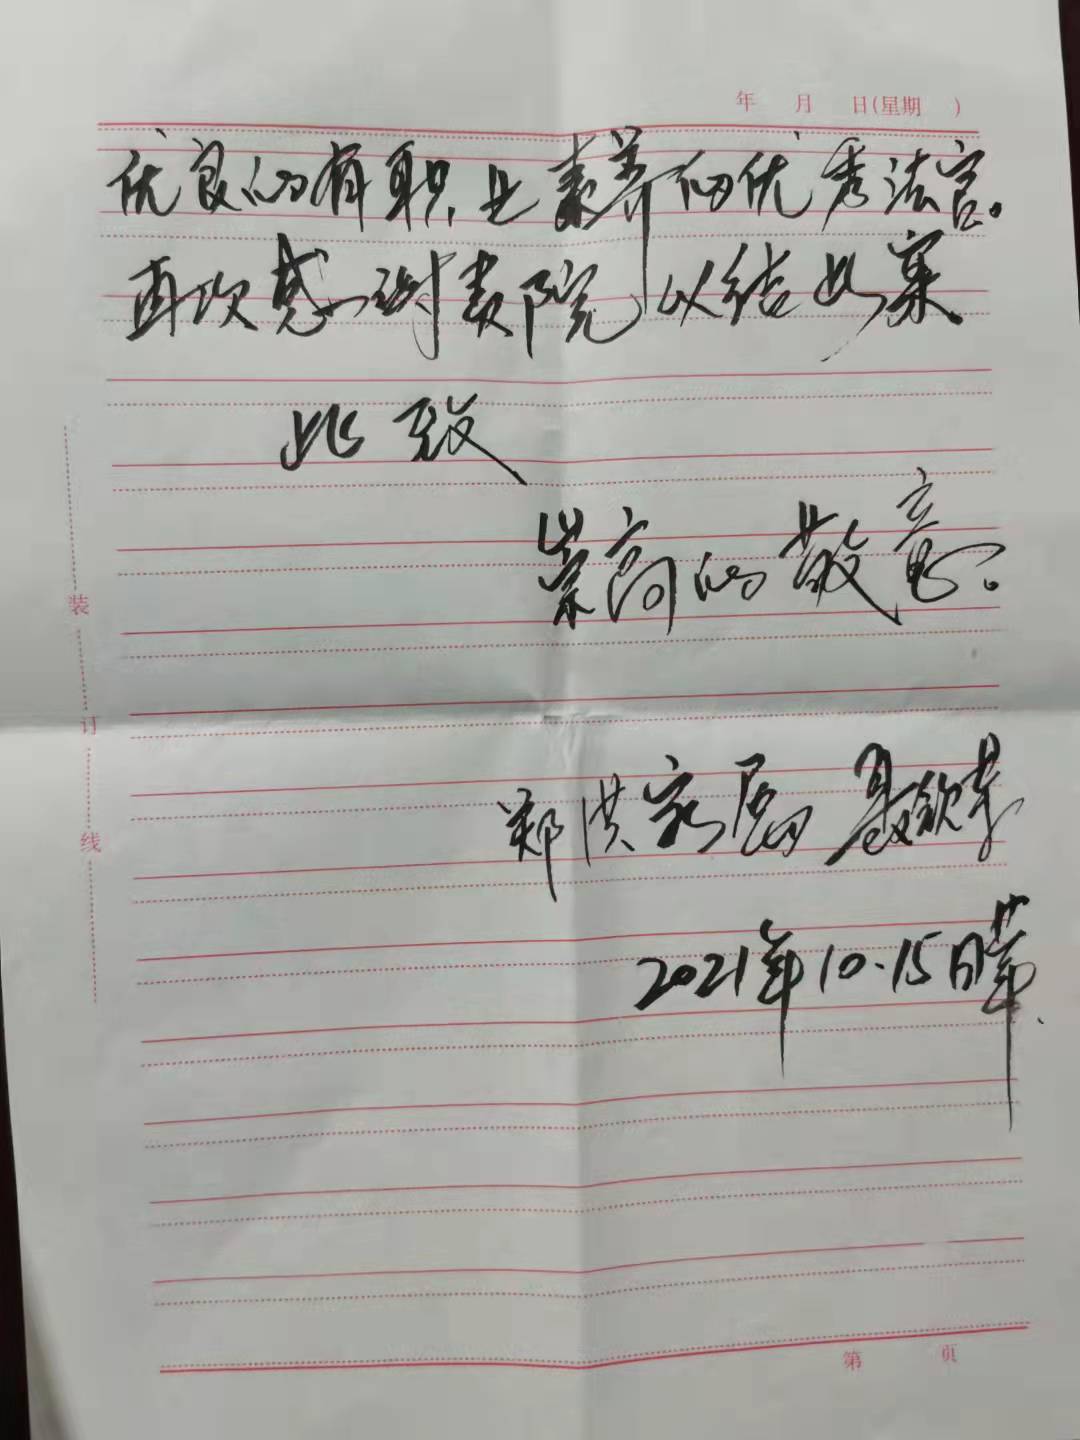 年 月 日(星期 )
优良的有职业素养的优秀法官。
再次感谢贵院以结此案
此致
崇高的敬意。
装
订
线
郑洪家属 聂钦
2021年10.15日
第 页